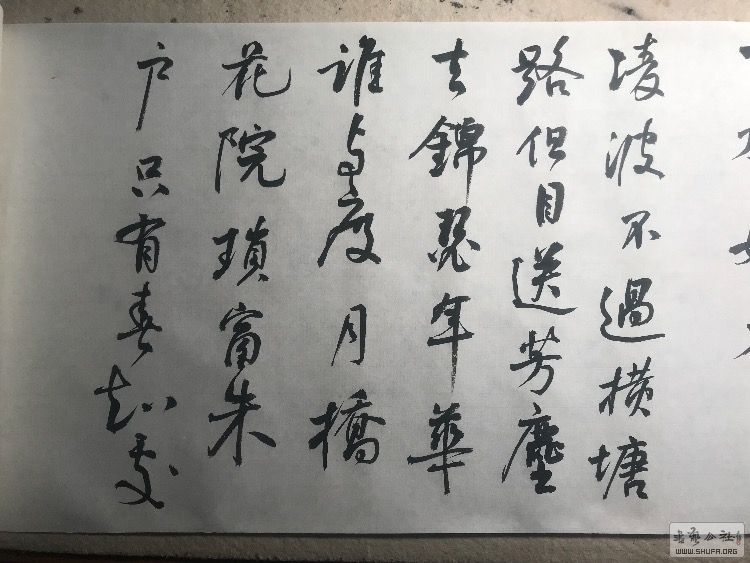 凌波不過横塘
路但目送芳塵
去錦瑟年華
誰与度月橋
花院瑣窗朱
户只有春知處
書藝公社
WWW.SHUFA.ORG